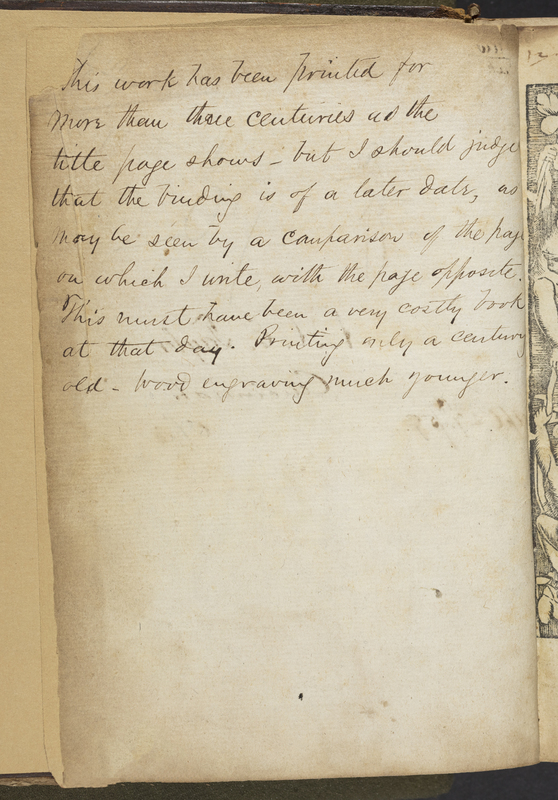 This work has been printed for
more than three centuries as the
title page shows - but I should judge
that the binding is of a later date, as
may be seen by a comparison of the page
on which I write, with the page opposite.
This must have been a very costly book
at that day. Printing only a century
old - Wood engraving much younger.